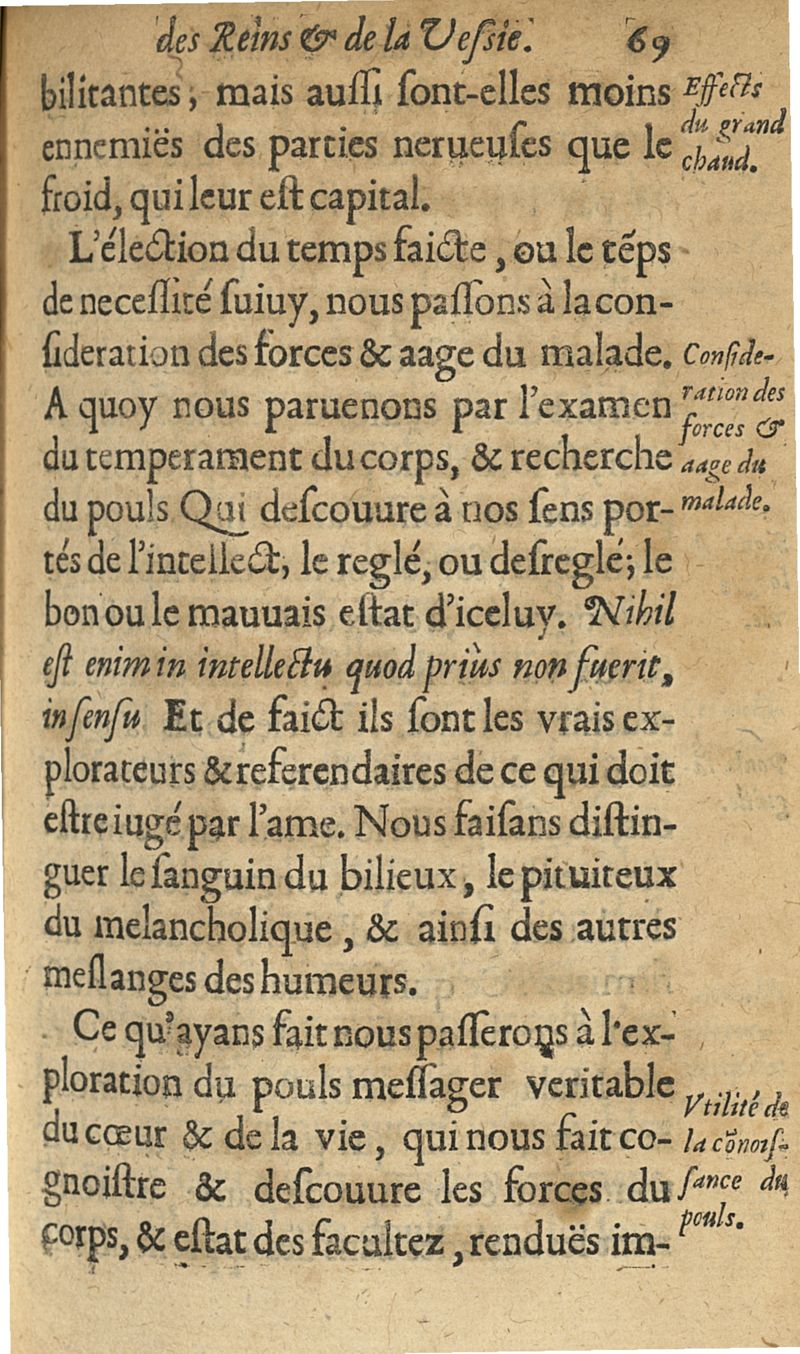 des Reins & de la Veſsie. 69
bilitantes, mais auſſi ſont-elles moins
ennemiës des parties nerueuſes que le
froid, qui leur eſt capital.
Effects
du grand
chaud.
L'élection du temps faicte, ou le tẽps
de neceſſité ſuiuy, nous paſſons à la con-
ſideration des forces & aage du malade.
A quoy nous paruenons par l'examen
du temperament du corps, & recherche
du pouls Qui deſcouure à nos ſens por-
tés de l'intellect, le reglé, ou deſreglé; le
bon ou le mauuais eſtat d'iceluy. Nihil
eſt enim in intellectu quod priùs non fuerit,
in ſenſu Et de faict ils ſont les vrais ex-
plorateurs & referendaires de ce qui doit
eſtre iugé par l'ame. Nous faiſans diſtin-
guer le ſanguin du bilieux, le pituiteux
du melancholique, & ainſi des autres
meſlanges des humeurs.
Conſide-
ration des
forces &
aage du
malade.
Ce qu'ayans fait nous paſſerons à l'ex-
ploration du pouls meſſager veritable
du cœur & de la vie, qui nous fait co-
gnoiſtre & deſcouure les forces du
corps, & eſtat des facultez, renduës im-
Vtilité de
la cõnoiſ-
ſance du
pouls.